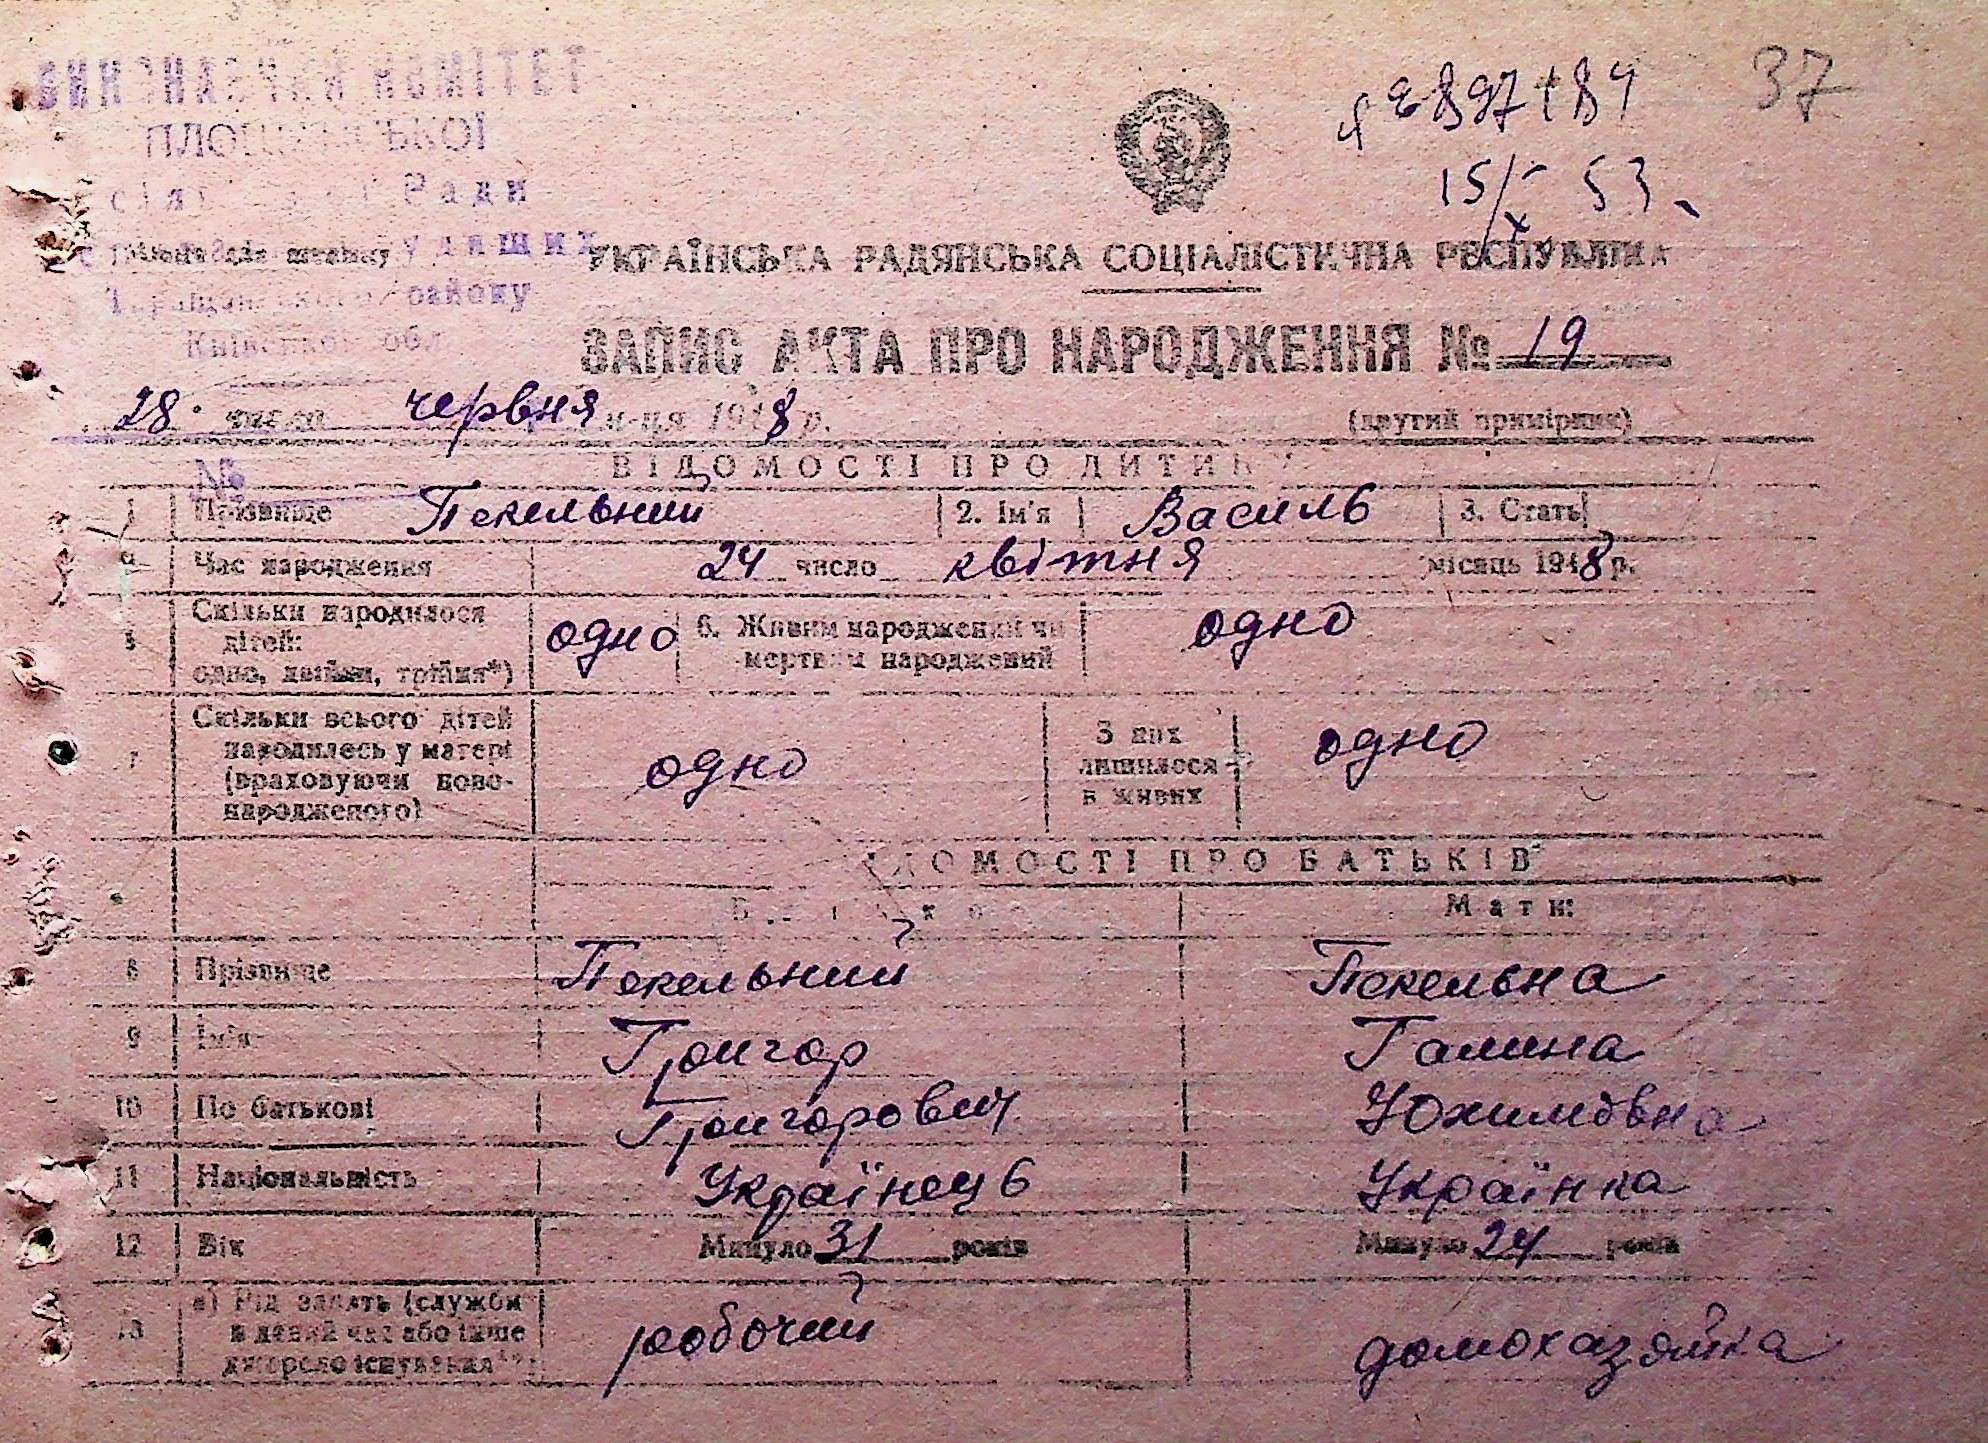 ВИКОНАВЧИЙ КОМІТЕТ
ПЛОЩАНСЬКОЇ
Ради
району
Київської обл.
37
897184
15/X 53
УКРАЇНСЬКА РАДЯНСЬКА СОЦІАЛІСТИЧНА РЕСПУБЛІКА
ЗАПИС АКТА ПРО НАРОДЖЕННЯ № 19
28 числа червня м-ця 1948 р. (другий примірник)
№
ВІДОМОСТІ ПРО ДИТИНУ
1 Прізвище Пекельний 2. Ім'я Василь 3. Стать
4 Час народження 24 число квітня місяць 1948 р.
5 Скільки народилося дітей: одно, двійня, трійня*) одно 6. Живим народжений чи мертвим народжений одно
7 Скільки всього дітей народилось у матері (враховуючи новонародженого) одно З них лишилося в живих одно
ВІДОМОСТІ ПРО БАТЬКІВ
Батько Мати
8 Прізвище Пекельний Пекельна
9 Ім'я Григор Галина
10 По батькові Григорович Юхимовна
11 Національність Українець Українка
12 Вік Минуло 31 років Минуло 24 років
13 а) Рід занять (служби в даний час або інше джерело існування робочий домохазяйка